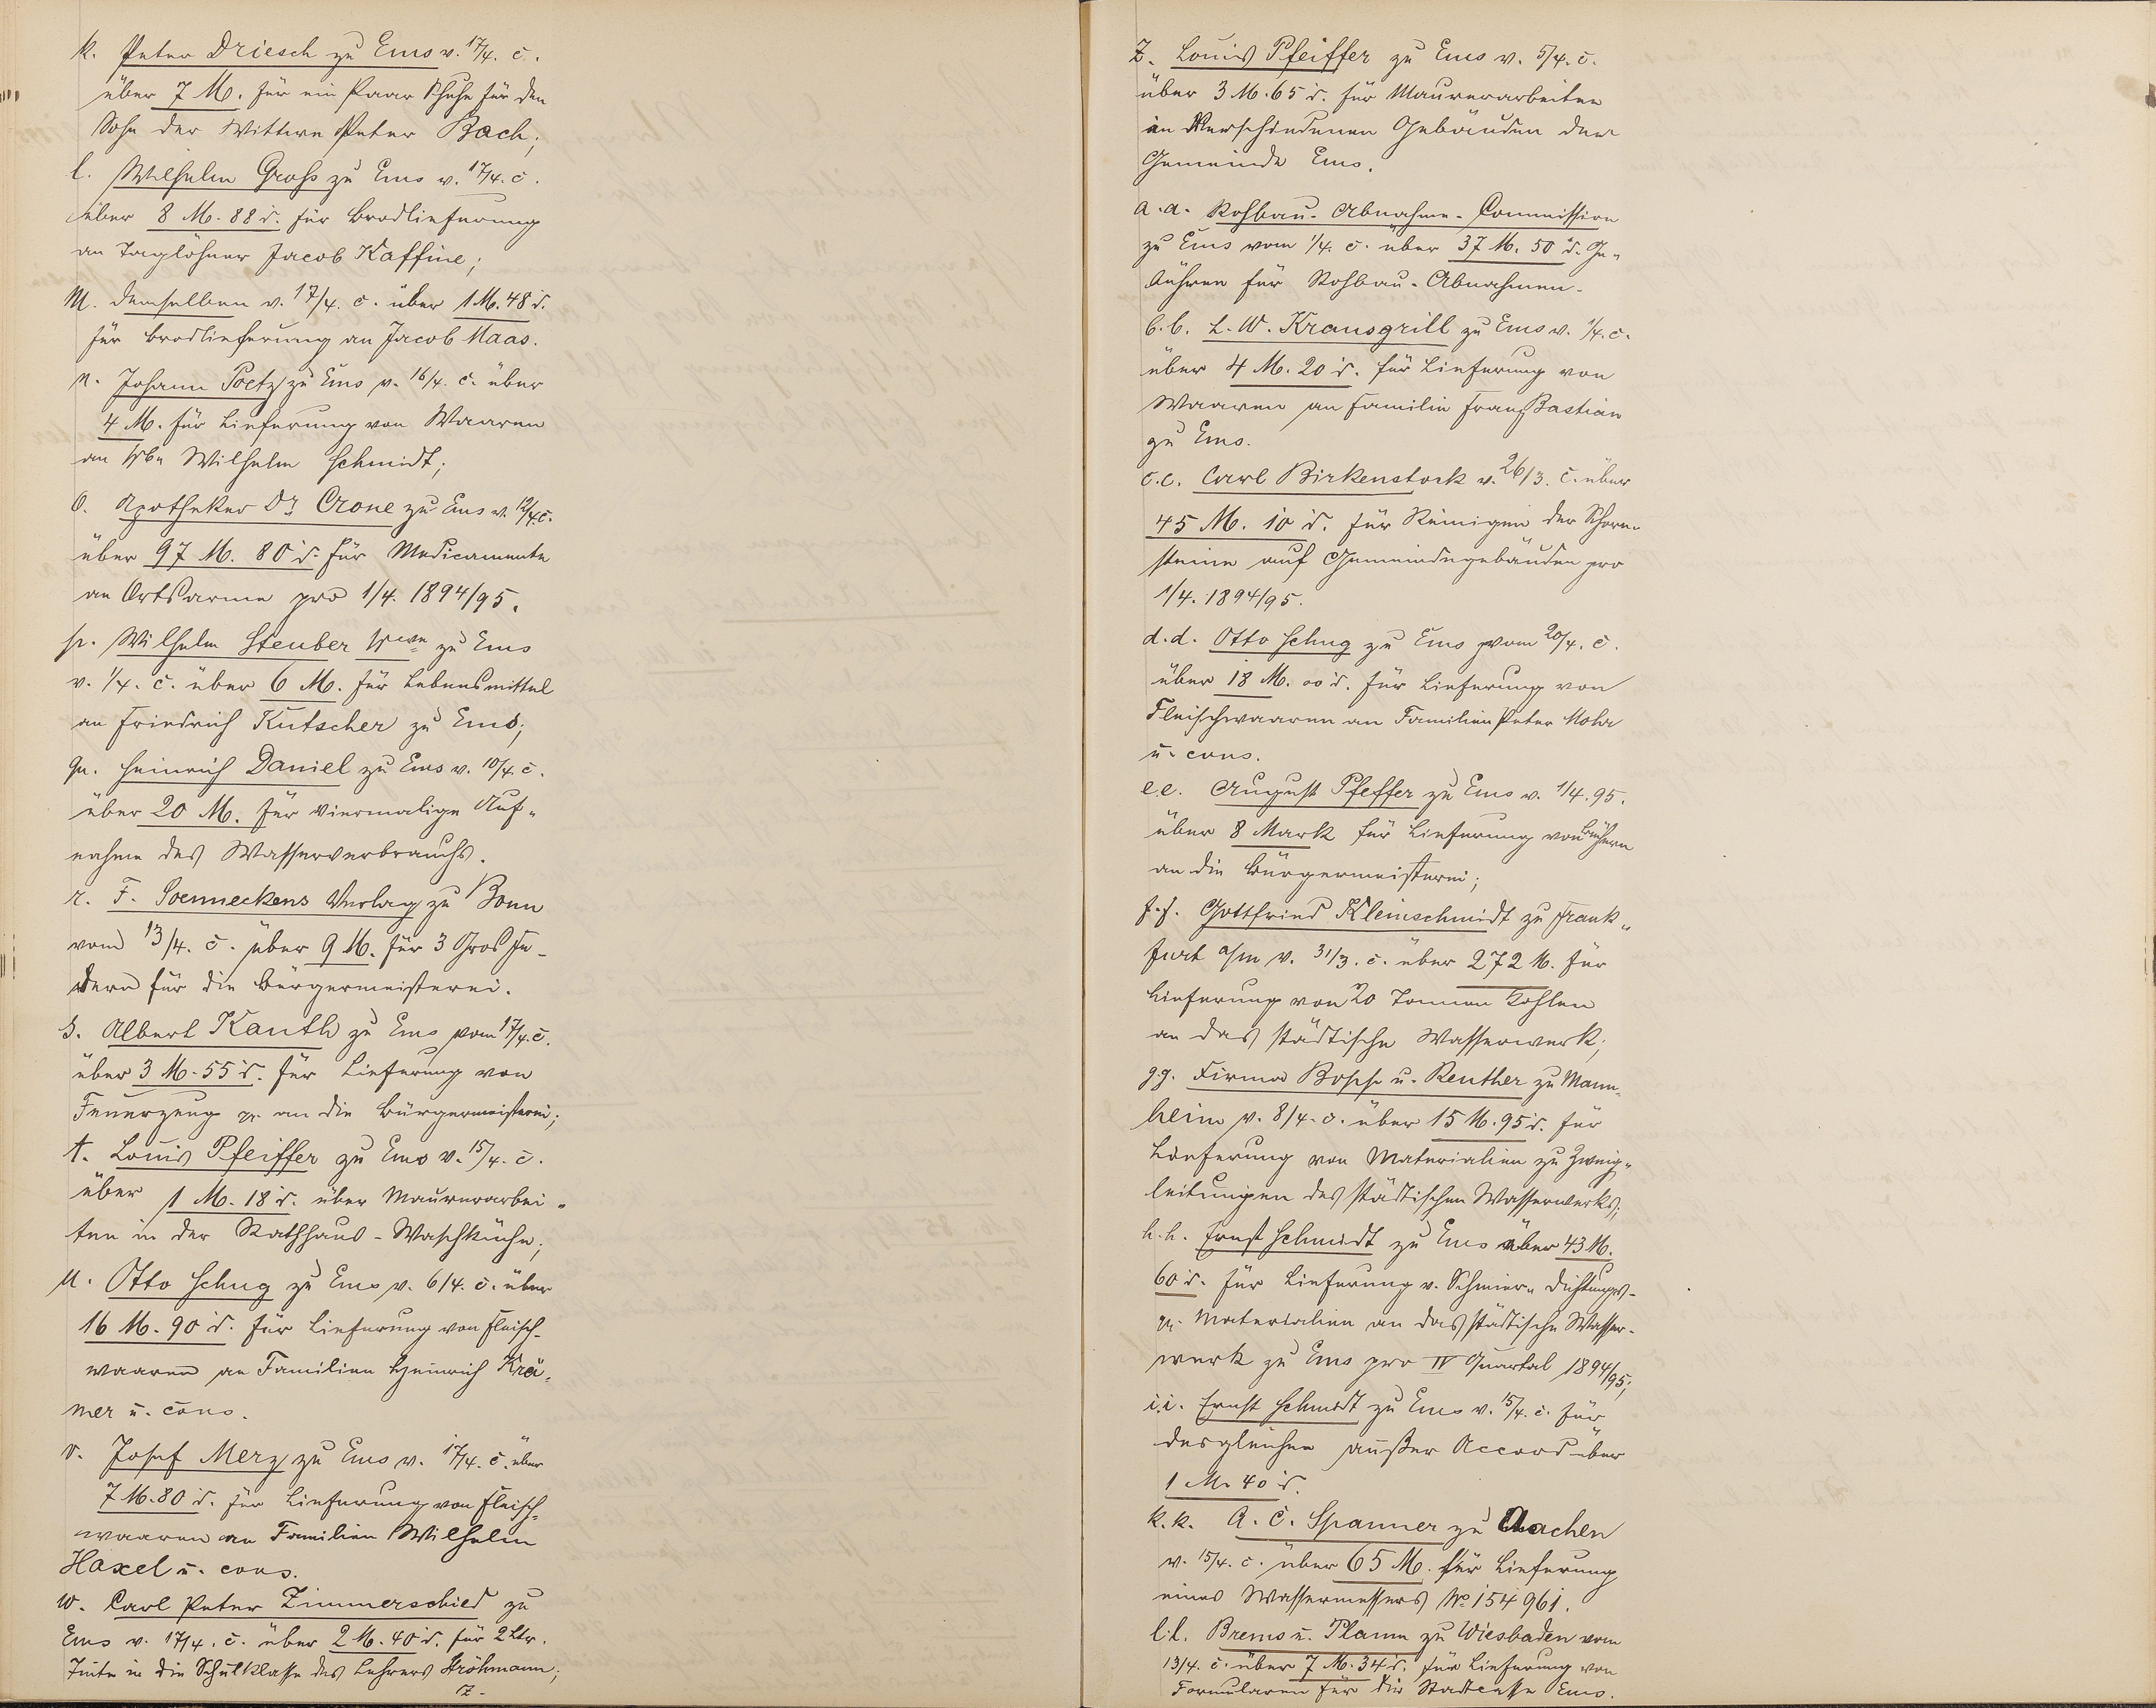 k. Peter Driesch zu Ems v. 17/4. c.
über 7 M. für ein Paar Schuhe für den
Sohn der Wittwe Peter Bach;
l. Wilhelm Groß zu Ems v. 17/4. c.
über 8 M. 88 d. für Brodlieferung
an Taglöhner Jacob Kaffine;
m. demselben v. 17/4. c. über 1 M. 48 d.
für Brodlieferung an Jacob Maas.
n. Johann Poetz zu Ems v. 16/4. c. über
4 M. für Lieferung von Waaren
an Wilhelm Schmidt;
o. Apotheker Dr. Crone zu Ems v. 12/4. c.
über 97 M. 80 d. für Medicamente
an Ortsarme pro 1/4. 1894/95.
p. Wilhelm Steuber Wwe zu Ems
v. 1/4. c. über 6 M. für Lebensmittel
an Friedrich Kutscher zu Ems;
q. Heinrich Daniel zu Ems v. 10/4. c.
über 20 M. für viermalige Auf-
nahme des Wasserverbrauchs.
r. F. Soenneckens Verlag zu Bonn
vom 13/4. c. über 9 M. für 3 Gros Fe-
dern für die Bürgermeisterei.
s. Albert Kauth zu Ems vom 17/4. c.
über 3 M. 55 d. für Lieferung von
Feuerzeug pp. an die Bürgermeisterei;
t. Louis Pfeiffer zu Ems v. 15/4. c.
über 1 M. 18 d. über Maurerarbei-
ten in der Rathhaus-Waschküche;
u. Otto Schug zu Ems v. 6/4. c. über
16 M. 90 d. für Lieferung von Fleisch-
waaren an Familien Heinrich Krä-
mer u. cons.
v. Josef Merz zu Ems v. 17/4. c. über
7 M. 80 d. für Lieferung von Fleisch-
waaren an Familien Wilhelm
Haxel u. cons.
w. Carl Peter Zimmerschied zu
Ems v. 17/4. c. über 2 M. 40 d. für 2 Ltr.
Tinte in die Schulklasse des Lehrers Ströhmann;
z.
Z. Louis Pfeiffer zu Ems v. 5/4. c.
über 3 M. 65 d. für Maurerarbeiten
in verschiedenen Gebäuden der
Gemeinde Ems.
a.a. Rohbau-Abnahme-Commission
zu Ems vom 1/4. c. über 37 M. 50 d. Ge-
bühren für Rohbau-Abnahmen.
b.b. L. W. Krausgrill zu Ems v. 1/4. c.
über 4 M. 20 d. für Lieferung von
Waaren an Familie Franz Bastian
zu Ems.
c.c. Carl Birkenstock v. 26/3. c. über
45 M. 10 d. für Reinigen der Schorn-
steine auf Gemeindegebäuden pro
1/4. 1894/95.
d.d. Otto Schug zu Ems vom 20/4. c.
über 18 M. 00 d. für Lieferung von
Fleischwaaren an Familien Peter Mohr
u. cons.
e.e. August Pfeffer zu Ems v. 1/4. 95.
über 8 Mark für Lieferung von Büchern
an die Bürgermeisterei;
f.f. Gottfried Kleinschmidt zu Frank-
furt a/m v. 31/3. c. über 272 M. für
Lieferung von 20 Tonnen Kohlen
an das städtische Wasserwerk;
g.g. Firma Bopp u. Reuther zu Mann-
heim v. 8/4. c. über 15 M. 95 d. für
Lieferung von Materialien zu Zweig-
leitungen des städtischen Wasserwerks;
h.h. Ernst Schmidt zu Ems über 43 M.
60 d. für Lieferung v. Schmier- Dichtungs-
pp. Materialien an das städtische Wasser-
werk zu Ems pro IV Quartal 1894/95;
i.i. Ernst Schmidt zu Ems v. 15/4. c. für
desgleichen außer Accord über
1 M. 40 d.
k.k. A. C. Spanner zu Aachen
v. 15/4. c. über 65 M. für Lieferung
eines Wassermessers No 154961.
l.l. Brems u. Plaum zu Wiesbaden vom
13/4. c. über 7 M. 34 d. für Lieferung von
Formularen für die Stadtcasse Ems.